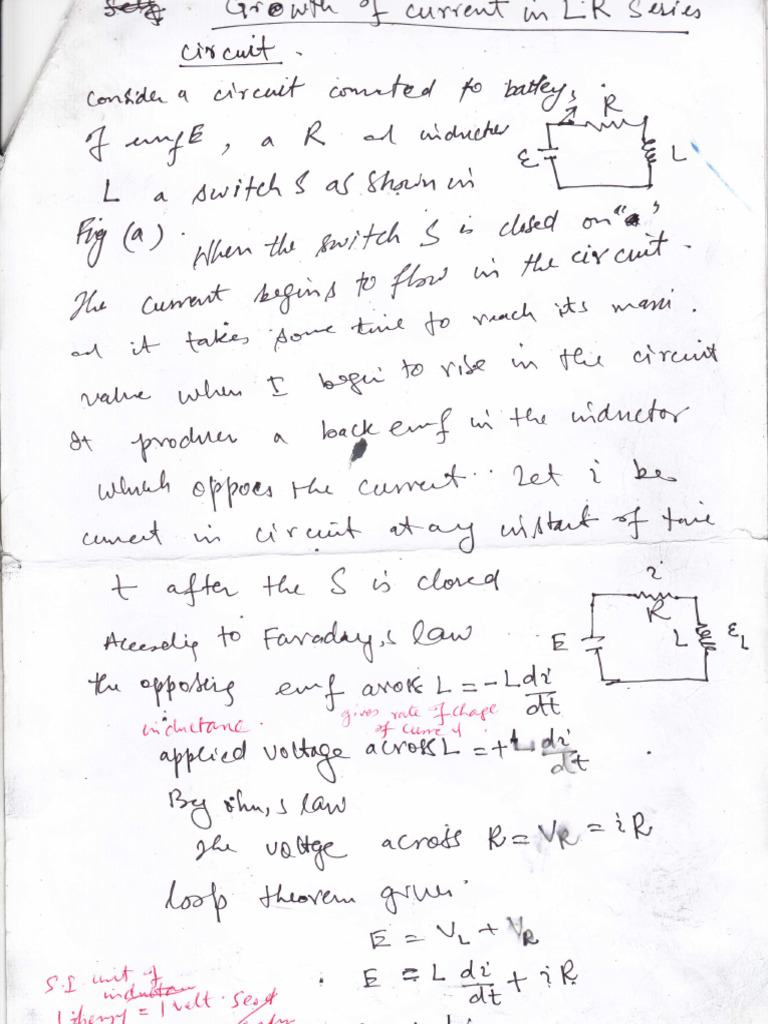 Growth of current in L R Series
circuit.
Consider a circuit connected to battery,
of emf E, a R ad inductor
L a switch S as shown in
Fig (a).
R
E
L
When the switch S is closed on "a"
The current begins to flow in the circuit.
ad it takes some time to reach its maxi.
value when I begin to rise in the circuit
It produces a back emf in the inductor
which oppoes the current. Let i be
current in circuit at any instant of time
t after the S is closed
i
R
E
L
εL
According to Faraday,s law
the opposing emf across L = -L di/dt
inductane
gives rate of chage
of curre
applied voltage across L = + L di/dt
By ohm,s law
The voltge across R = VR = iR
loop theorem gives
E = VL + VR
E = L di/dt + iR
S.I unit of
1 henry = 1 volt.